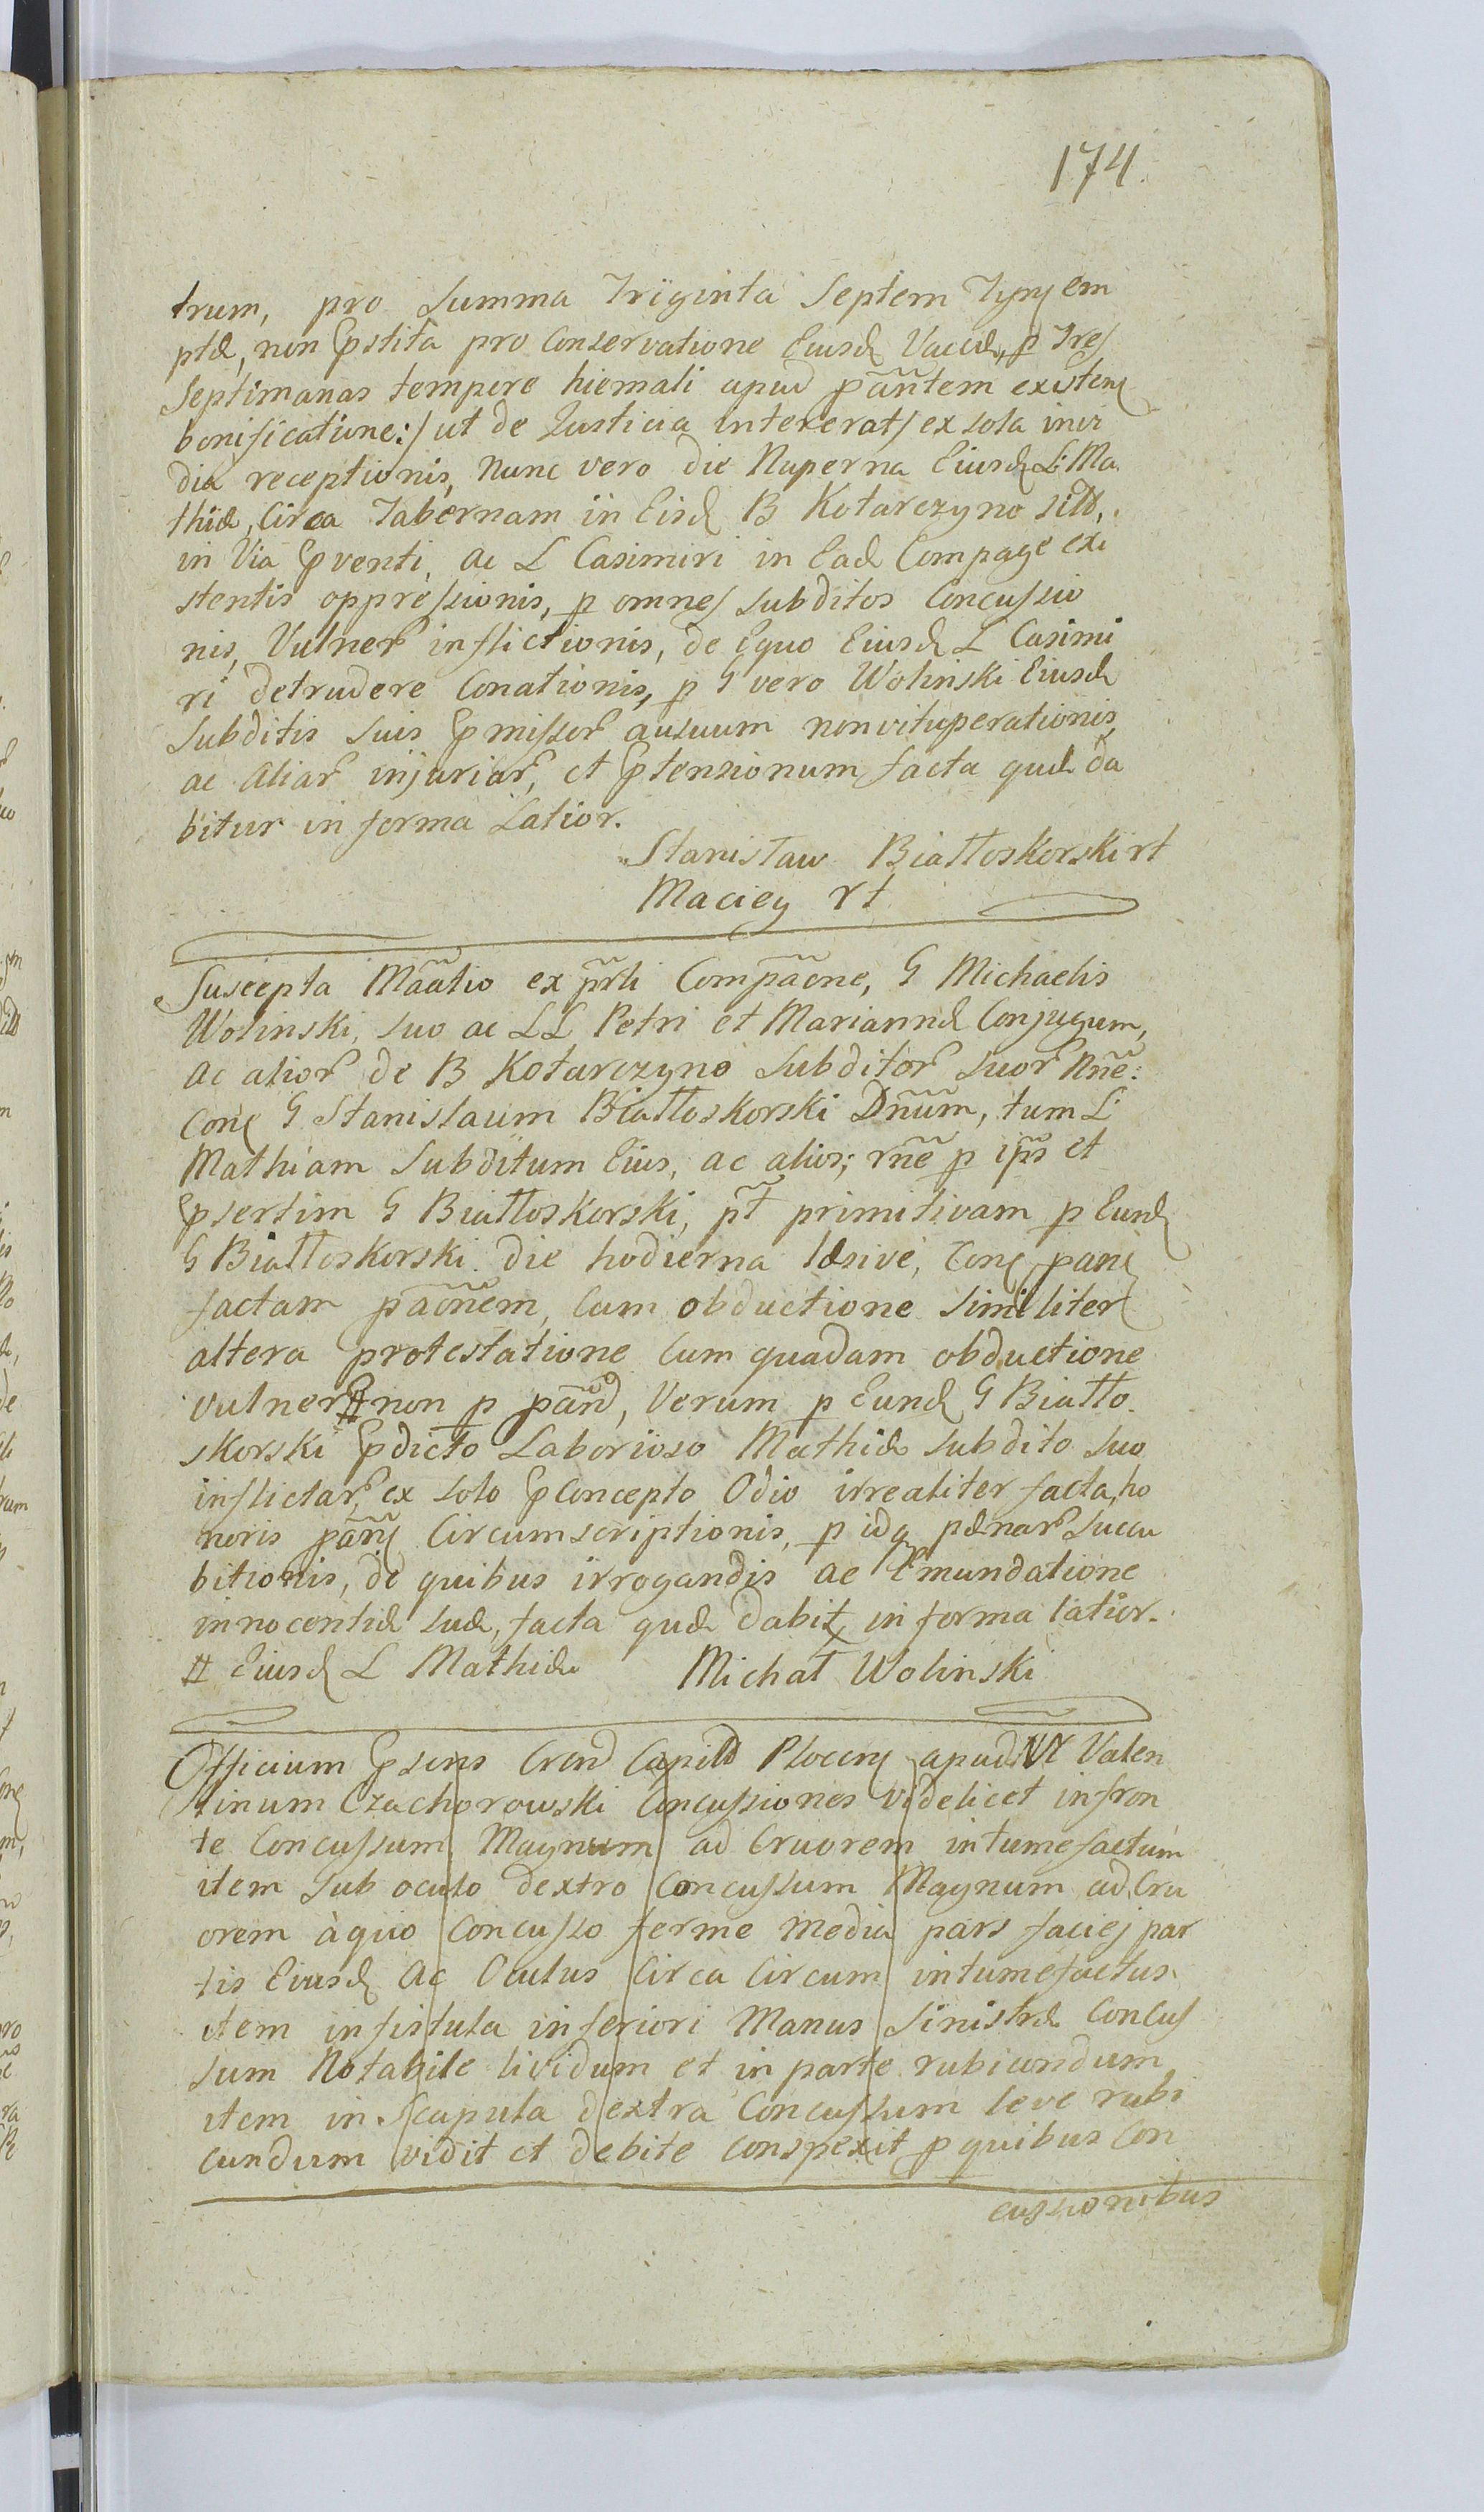 174.
trum, pro Summa Triginta Septem Tynf em
ptæ, non Pstita pro Conservatione Eiusd Vaccæ, p Tres
Septimanas tempore hiemali apud pantem existen
bonificatione:/ ut de Justicia intererat/ ex sola invi
dia receptionis, Nunc vero die Nuperna Eiusd L Ma
thiæ, Circa Tabernam in Eisd B Kotarczyno sitt,
in Via Pventi, ac L Casimiri in Ead Compage exi
stentis oppressionis, p omnes subditos Concussio
nis, Vulner inflictionis, de Equo Eiusd L Casimi
ri detrudere Conationis, p G vero Wolinski Eiusd
Subditis suis Pmissor ausuum non vituperationis,
ac Aliar injuriar, et Ptensionum facta quæ da
bitur in forma Latior.
Stanisław Białłoskorski rt
Maciey rt
Suscepta Maatio ex prli Compaone, G Michaelis
Wolinski, suo ac LL Petri et Mariannæ Conjugum,
ac alior de B Kotarczyno Subditor suor Nne:
Con G Stanislaum Białłoskorski Dnum, tum L
Mathiam Subditum Eius, ac alios; rne p ipos et
Psertim G Białłoskorski, pt primitivam p Eund
G Białłoskorski die hodierna læsive, Con pan
factam paonem, Cum obductione similiter
altera protestatione Cum quadam obductione
vulner # non p pand, Verum p Eund G Białło
skorski Pdicto Laborioso Mathiæ subdito suo
inflictar, ex solo Pconcepto Odio irrealiter facta, ho
noris pan Circumscriptionis, p idq pænar succu
bitionis, de quibus irrogandis ac Emundatione
innocentiæ suæ, facta quæ dabit in forma latior.
# Eiusd L Mathiæ Michał Wolinski
Officium Psens Cren Capitt Plocen apud Valen
tinum Czachorowski Concussiones videlicet in fron
te Concussum Magnum ad Cruorem intumefactum
item sub oculo dextro Concussum Magnum ad Cru
orem à quo Concusso ferme media pars faciej par
tis Eiusd ac Oculus Circa Circum intumefactus
item in fistula inferiori Manus Sinistræ Concus
sum Notabile lividum et in parte rubicundum
item in Scapula dextra Concussum leve rubi
cundum vidit et debite conspexit p quibus Con
cussionibus